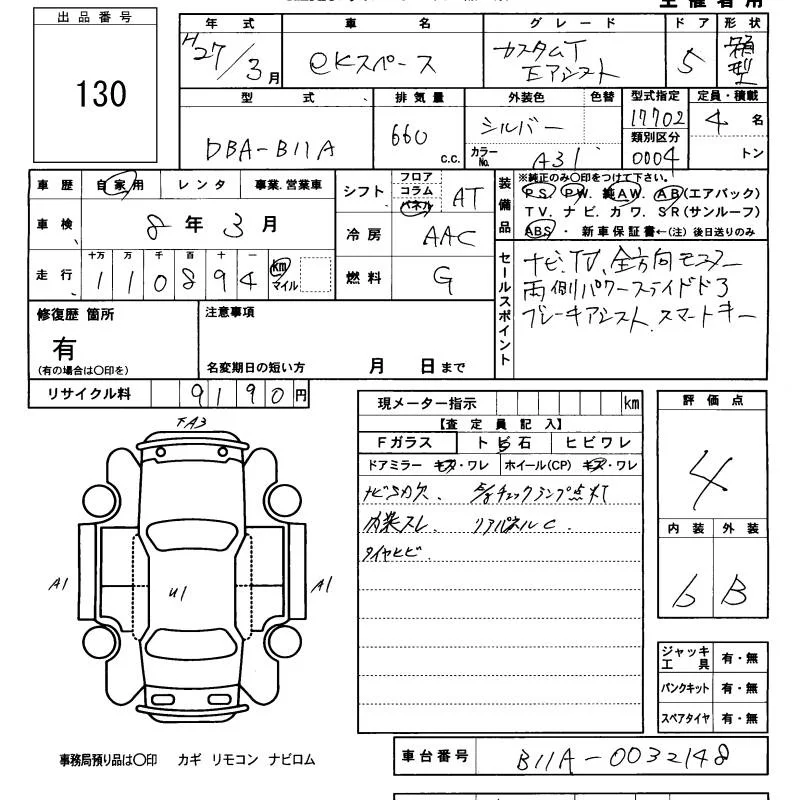 出品番号
130
年式 車名 グレード ドア 形状
H27/3月 eKスペース カスタムT Eアシスト 5 箱型
型式 排気量 外装色 色替 型式指定 定員・積載
DBA-B11A 660 c.c. シルバー 17702 4 名
カラーNo. A31 類別区分 0004 トン
車歴 自家用 レンタ 事業.営業車
シフト フロア コラム パネル AT
装備品 ※純正のみ〇印をつけて下さい。
PS. PW. 純AW. AB(エアバック)
TV. ナビ. カワ. SR(サンルーフ)
ABS・ 新車保証書←(注)後日送りのみ
車検 8年3月
冷房 AAC
走行 十万 万 千 百 十
1 1 0 8 9 4 km マイル
燃料 G
セールスポイント
ナビ、TV、全方向モニター
両側パワースライドドア
ブレーキアシスト スマートキー
修復歴 箇所
有
(有の場合は〇印を)
注意事項
名変期日の短い方 月 日まで
リサイクル料 9190円
現メーター指示 km
【査定員記入】
Fガラス トビ石 ヒビワレ
ドアミラー キズ・ワレ ホイール(CP) キズ・ワレ
チェックランプ点灯
内装スレ リアパネルC.
タイヤヒビ.
評価点
4
内装 外装
b B
FA3
A1 U1 A1
ジャッキ工具 有・無
パンクキット 有・無
スペアタイヤ 有・無
事務局預り品は〇印 カギ リモコン ナビロム
車台番号 B11A-0032148